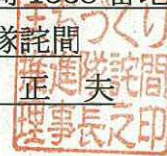 隊詫間
正 夫
まちづくり
推進隊詫間
理事長之印